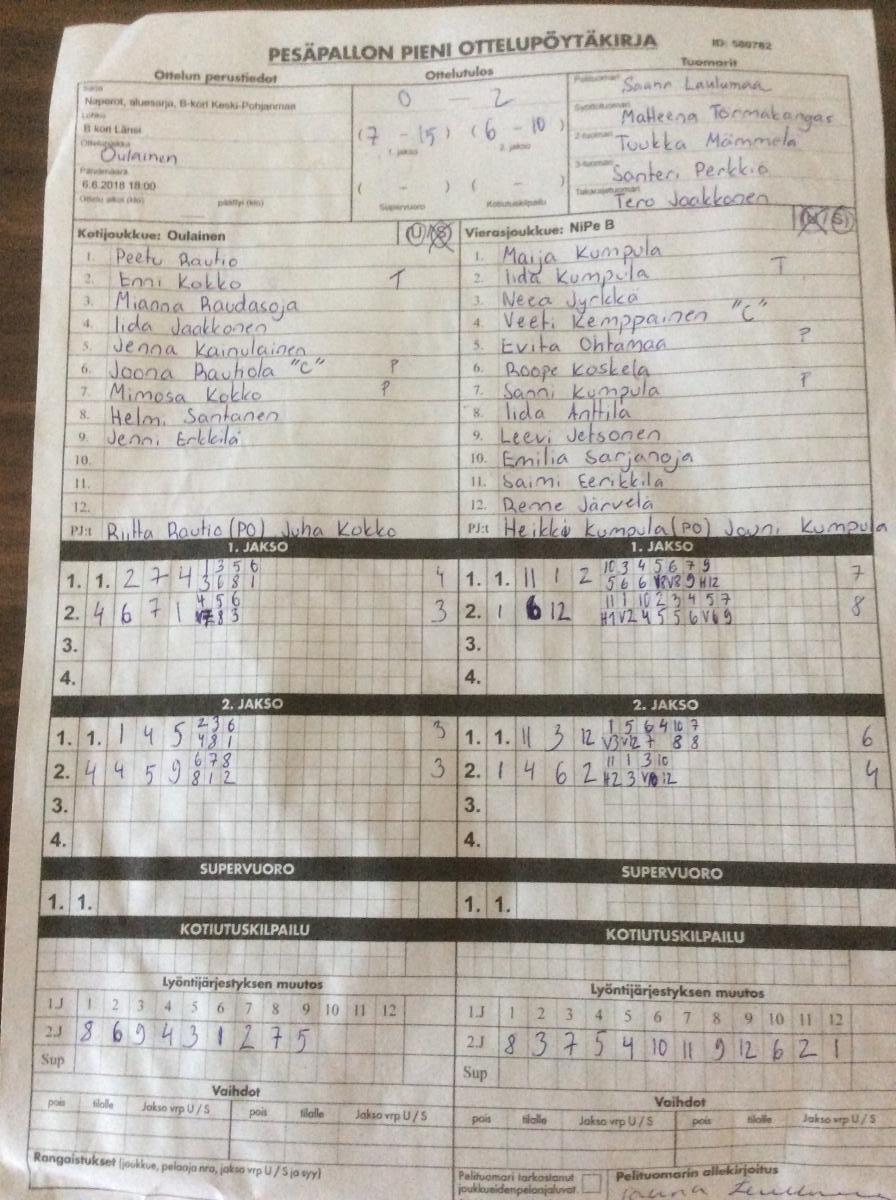 PESÄPALLON PIENI OTTELUPÖYTÄKIRJA ID: 580782
Ottelun perustiedot Ottelutulos Tuomarit
Sarja
Naperot, aluesarja, B-kori Keski-Pohjanmaa
Lohko
B kori Länsi
Ottelupaikka
Oulainen
Päivämäärä
6.6.2018 18:00
Ottelu alkoi (klo) päättyi (klo)
0 - 2
(7 - 15) (6 - 10)
1. jakso 2. jakso
( - ) ( - )
Supervuoro Kotiutuskilpailu
Pelituomari Saana Laulumaa
Syöttötuomari Matleena Törmäkangas
2-tuomari Tuukka Mämmelä
3-tuomari Santeri Perkkiö
Takarajatuomari Tero Jaakkonen
Kotijoukkue: Oulainen U / S
1. Peetu Rautio
2. Enni Kokko T
3. Mianna Raudasoja
4. Iida Jaakkonen
5. Jenna Kainulainen
6. Joona Rauhola "C" P
7. Mimosa Kokko P
8. Helmi Santanen
9. Jenni Erkkilä
10.
11.
12.
PJ:t Riitta Rautio (PO) Juha Kokko
Vierasjoukkue: NiPe B U / S
1. Maija Kumpula
2. Iida Kumpula T
3. Neea Jyrkkä
4. Veeti Kemppainen "C"
5. Evita Ohtamaa P
6. Roope Koskela
7. Sanni Kumpula P
8. Iida Anttila
9. Leevi Jetsonen
10. Emilia Sarjanoja
11. Saimi Eerikkilä
12. Renne Järvelä
PJ:t Heikki Kumpula (PO) Jouni Kumpula
1. JAKSO
1. 1. 2 7 4 1 3 5 6 4
3 6 8 1
2. 4 6 7 1 4 5 6 3
V7 8 3
3.
4.
1. JAKSO
1. 1. 11 1 2 10 3 4 5 6 7 9 7
5 6 6 V2 V8 9 H12
2. 1 6 12 11 1 10 2 3 4 5 7 8
H1 V2 4 5 5 6 V6 9
3.
4.
2. JAKSO
1. 1. 1 4 5 2 3 6 3
4 8 1
2. 4 4 5 9 6 7 8 3
8 1 2
3.
4.
2. JAKSO
1. 1. 11 3 12 1 5 6 4 10 7 6
V3 V12 7 8 8
2. 1 4 6 2 11 1 3 10 4
H2 3 12
3.
4.
SUPERVUORO
1. 1.
SUPERVUORO
1. 1.
KOTIUTUSKILPAILU
KOTIUTUSKILPAILU
Lyöntijärjestyksen muutos
1.J 1 2 3 4 5 6 7 8 9 10 11 12
2.J 8 6 9 4 3 1 2 7 5
Sup
Lyöntijärjestyksen muutos
1.J 1 2 3 4 5 6 7 8 9 10 11 12
2.J 8 3 7 5 4 10 11 9 12 6 2 1
Sup
Vaihdot
pois tilalle Jakso vrp U / S pois tilalle Jakso vrp U / S
Vaihdot
pois tilalle Jakso vrp U / S pois tilalle Jakso vrp U / S
Rangaistukset (joukkue, pelaaja nro, jakso vrp U / S ja syy)
Pelituomari tarkastanut
joukkueidenpelaajaluvat.
Pelituomarin allekirjoitus